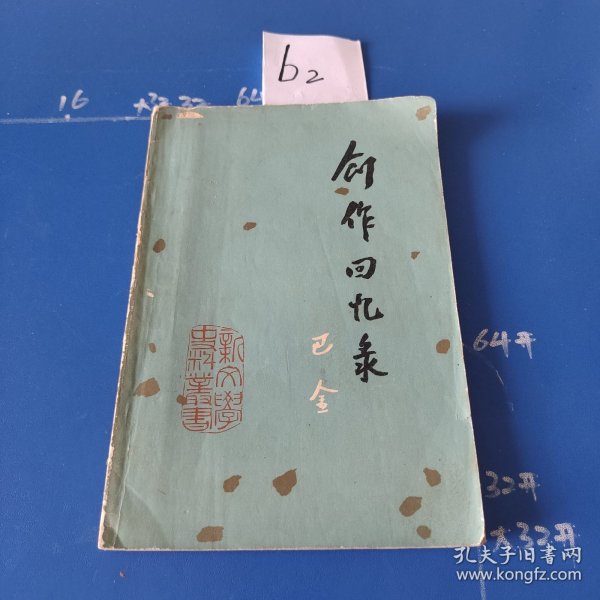 b2
16
大32 32
64
创作回忆录
巴金
新文學
史料叢書
64开
32开
大32开
孔夫子旧书网
www.kongfz.com